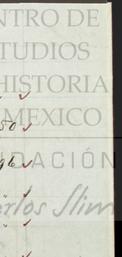 NTRO DE
TUDIOS
HISTORIA
MEXICO
50 ✓
96 ✓
DACIÓN
arlos Slim